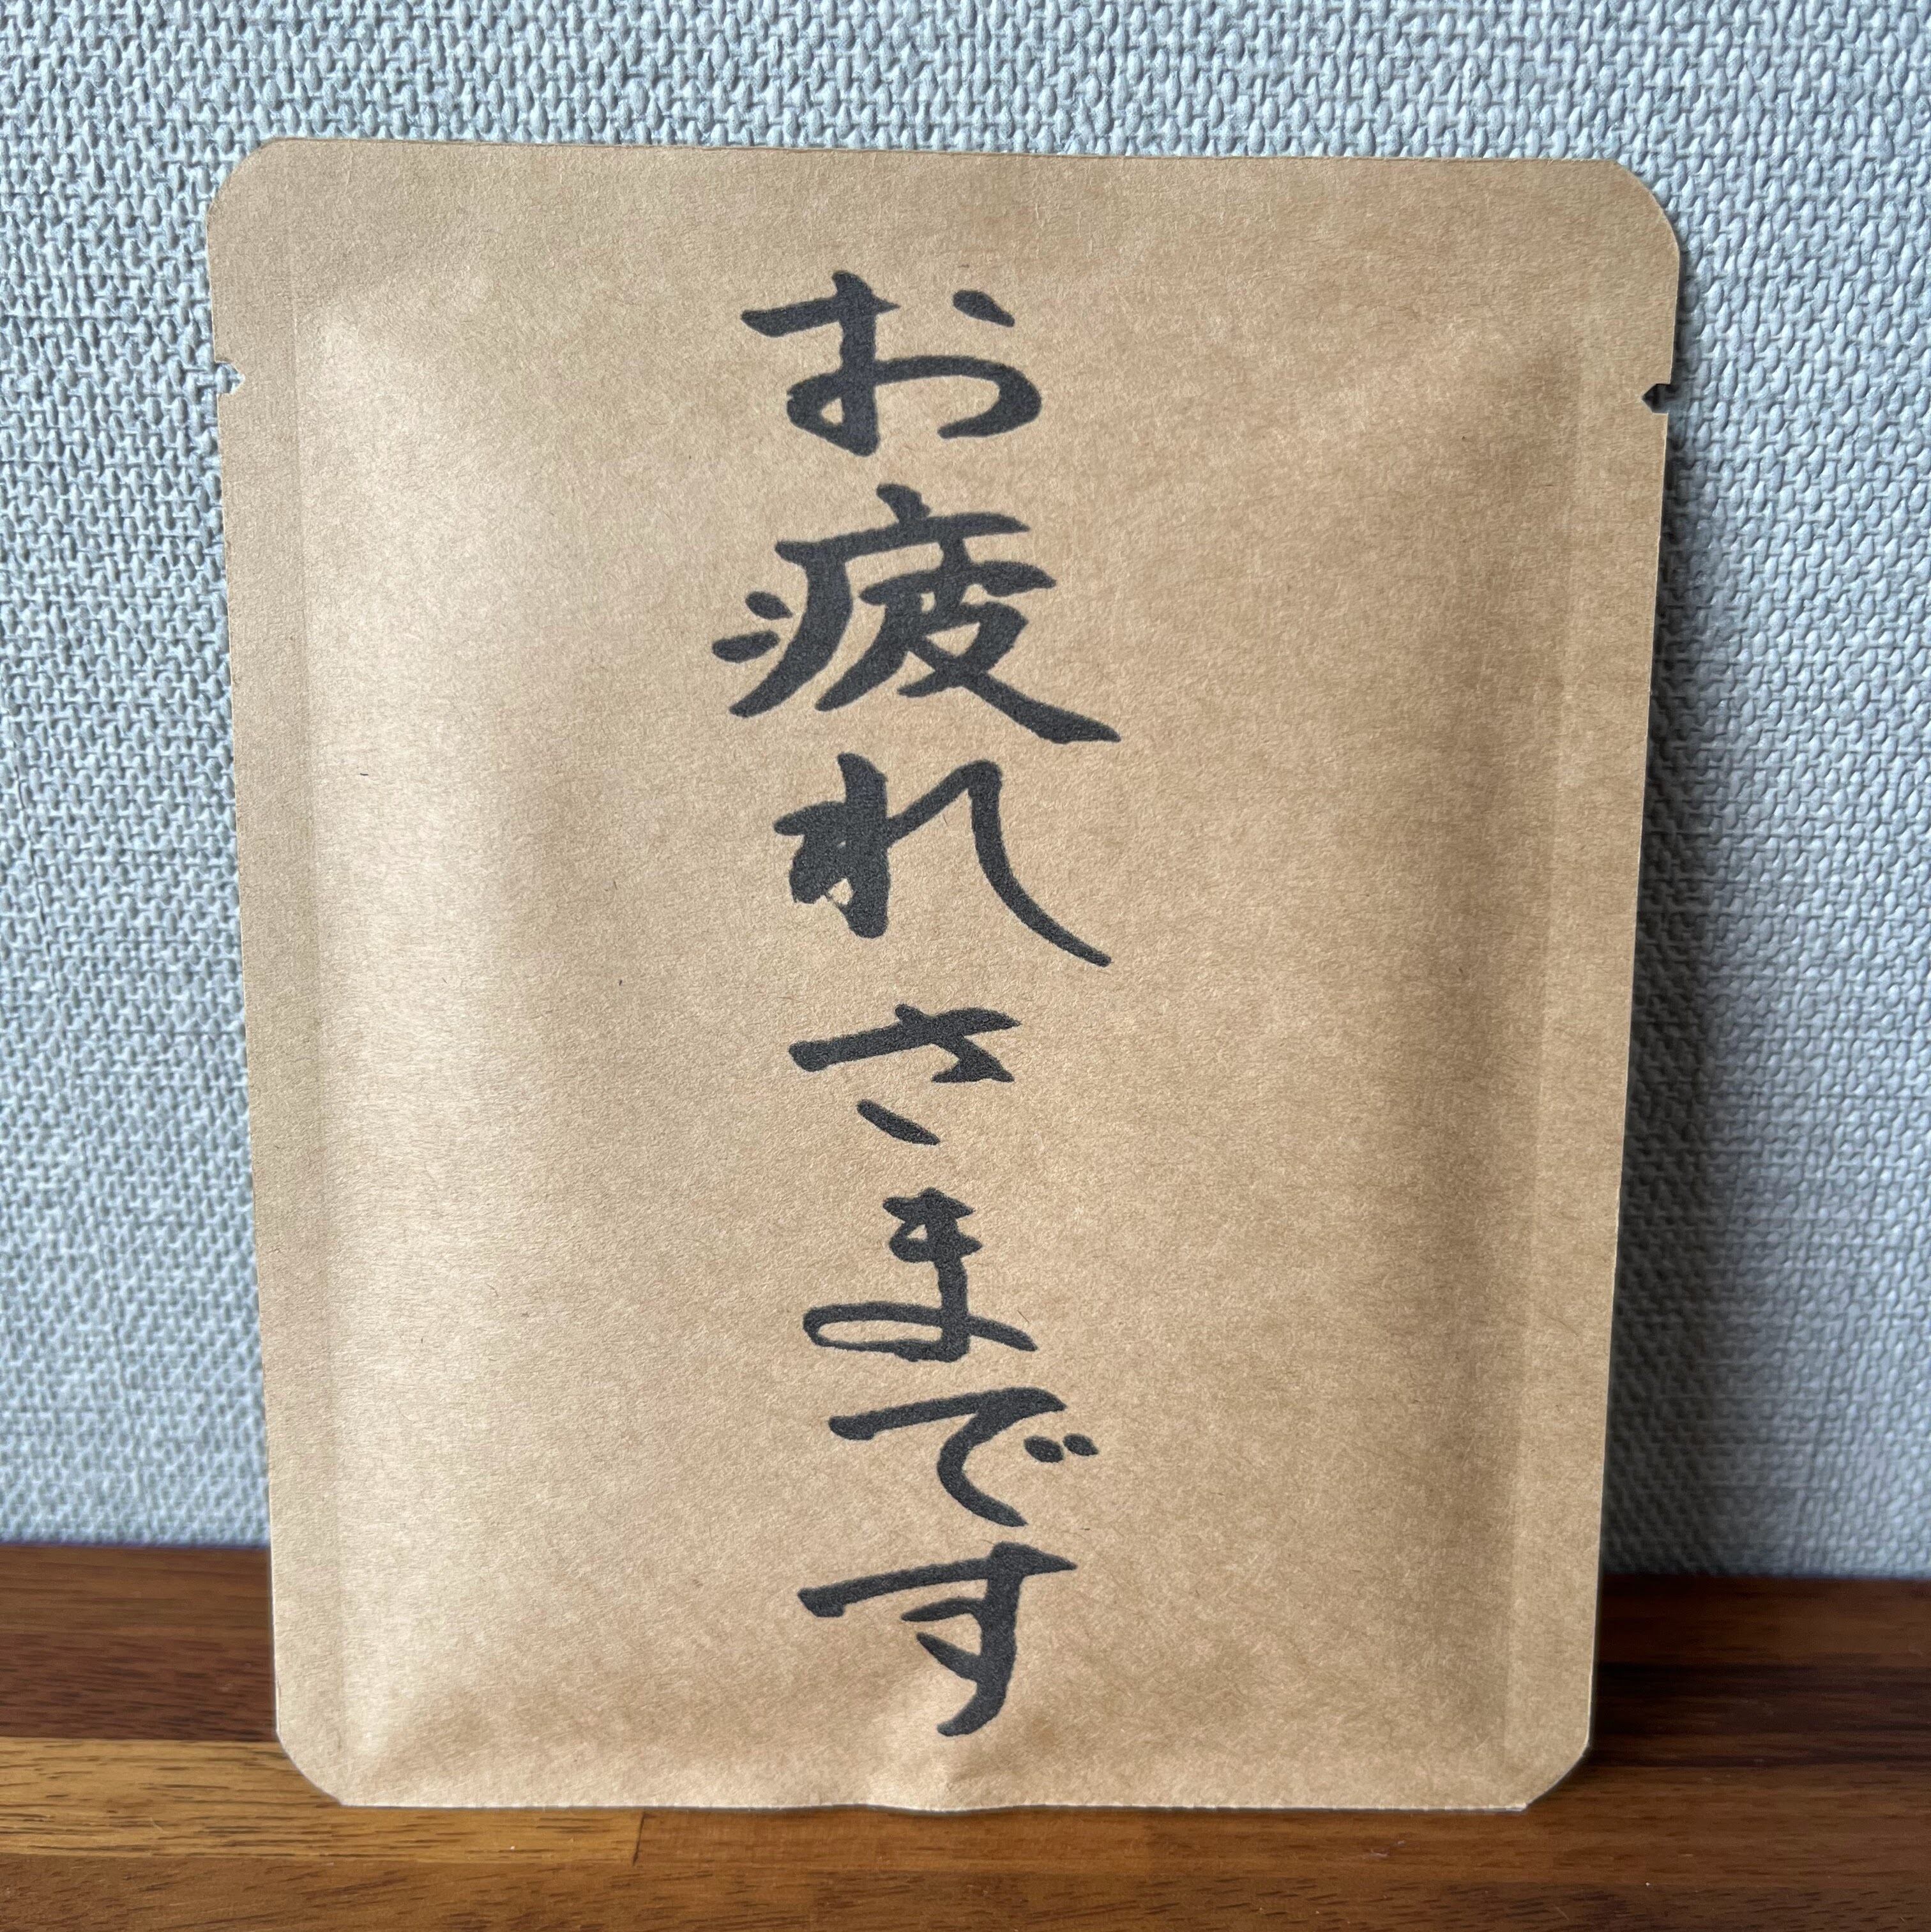 お疲れさまです